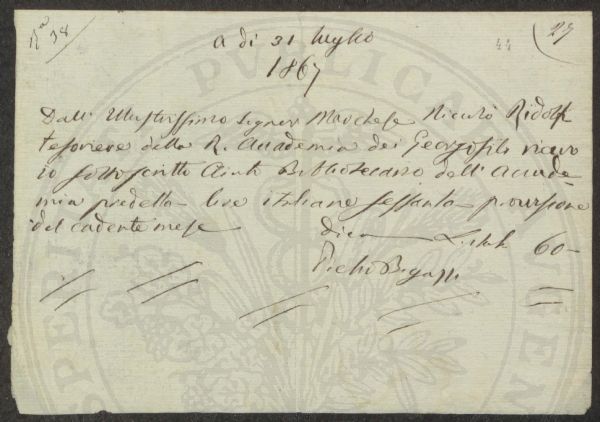 N.º 38
a dì 31 luglio
44
27
1867
Dall' Illustrissimo Signor Marchese Niccolò Ridolfi
tesoriere della R. Accademia dei Georgofili ricevo
io sottoscritto Aiuto Bibliotecario dell' Accade=
mia predetta lire italiane sessanta provvisione
del cadente mese
dico L. ital. 60 =
Pietro Bigazzi
PUBLICA